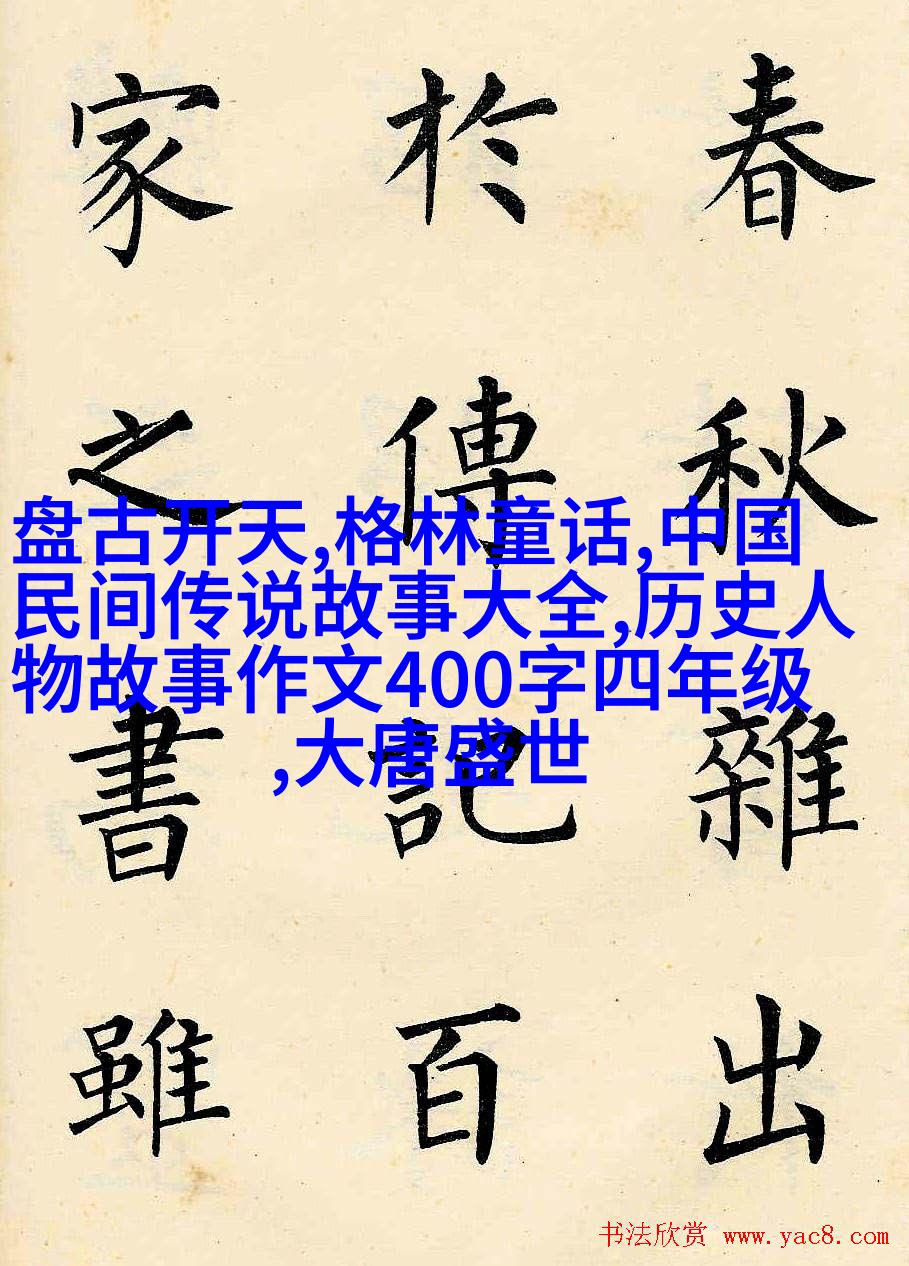 春秋雜出
於傳記百
家之書雖
盘古开天,格林童话,中国
民间传说故事大全,历史人
物故事作文400字四年级
,大唐盛世
书法欣赏 www.yac8.com